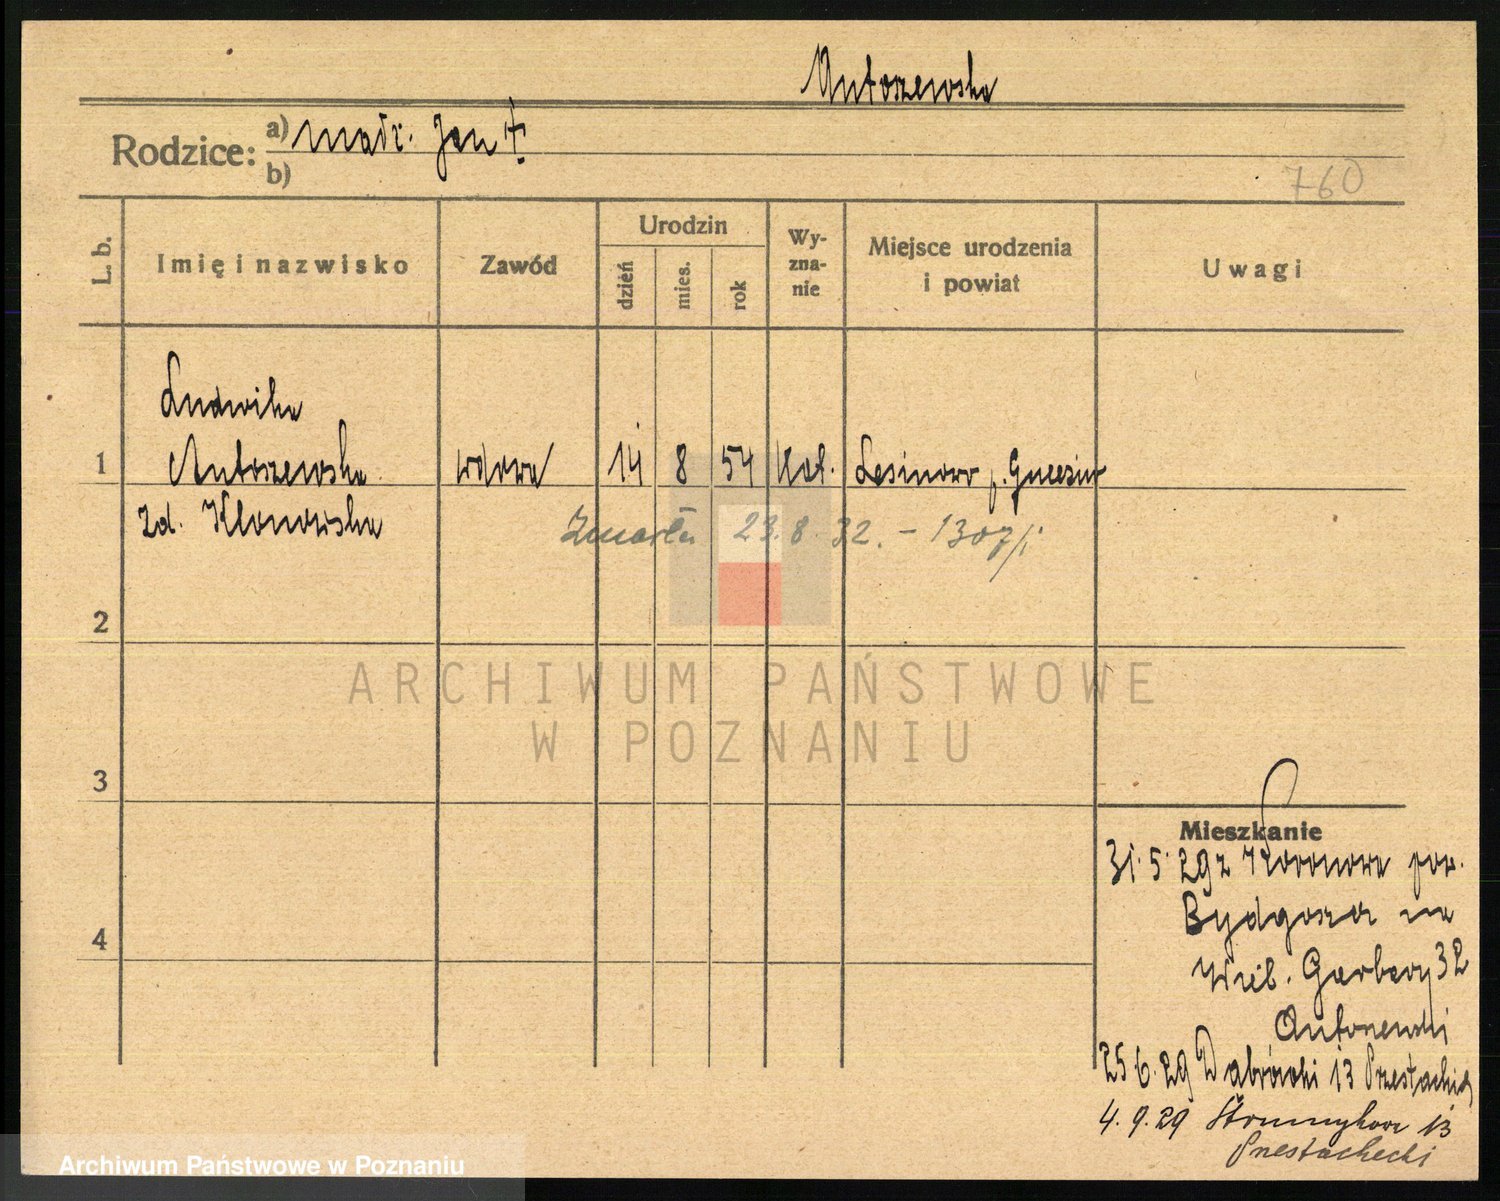 Antoszewska
Rodzice: a) małż. Jan †
b)
760
L. b.
Imię i nazwisko
Zawód
Urodzin
dzień
mies.
rok
Wy-
zna-
nie
Miejsce urodzenia
i powiat
Uwagi
Ludwika
1 Antoszewska wdowa 14 8 54 kat. Lesinowo p. Gniezno
zd. Klonowska
Zmarła 23.8.32. - 1307/i
2
ARCHIWUM PAŃSTWOWE
W POZNANIU
3
4
Mieszkanie
31.5.29 z Koronowa pow.
Bydgoszcz na
Wiel. Garbary 32
Antoszewski
25.6.29 Dąbrówki 13
4.9.29 Strumykowa 13
Przestachecki
Archiwum Państwowe w Poznaniu